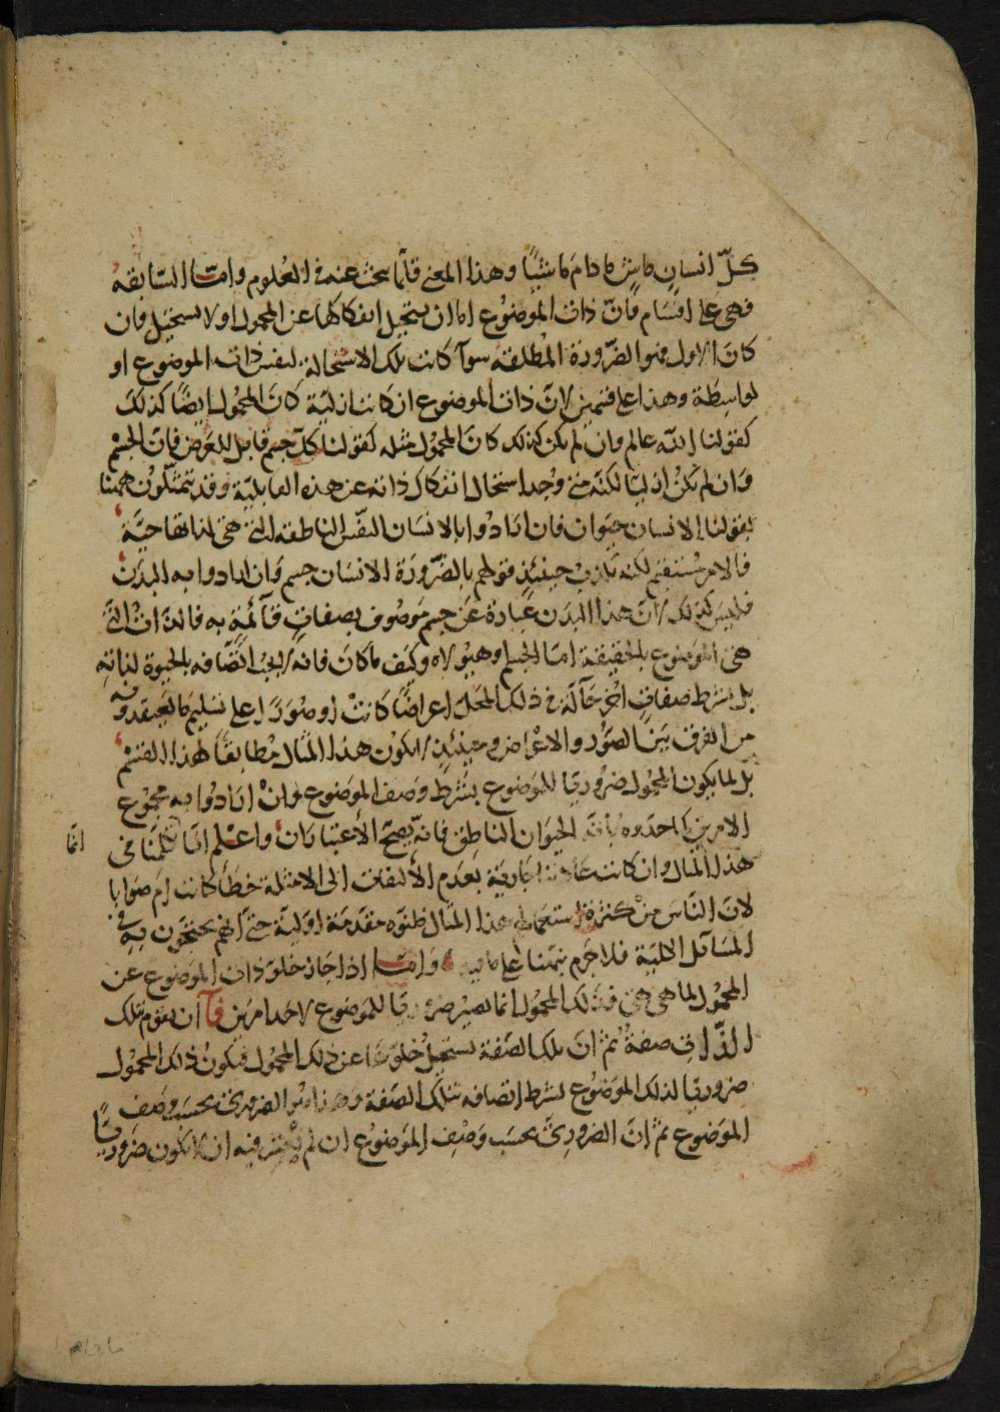 كلّ انسان ماش مادام ماشيًا وهذا المعنى قلّما يبحث عنه فى العلوم وامّا السّابقة
فهى على اقسام فانّ ذات الموضوع اما ان يستحيل انفكاكها عن المحمول او لا يستحيل فان
كان الاول فهو الضّرورة المطلقة سوآ كانت تلك الاستحالة لنفس ذات الموضوع او
لواسطة وهذا على قسمين لانّ ذات الموضوع ان كانت ازليّة كان المحمول ايضًا كذلك
كقولنا الله عالم وان لم يكن كذلك كان المحمول مثله كقولنا كلّ جسم قابل للعرض فانّ الجسم
وان لم يكن ازليّا لكنّه متى وُجد استحال انفكاك ذاته عن هذه القابليّة وقد يتمثّلون ههنا
بقولنا الانسان حيوان فان ارادوا بالانسان النفس الناطقة التى هى لذاتها حيّة
فالامر مُستقيم لكنه يكذب حينئذٍ قولهم بالضّرورة الانسان جسم وان ارادوا به البدن
فليس كذلك لانّ هذا البدن عبارة عن جسم موصوف بصفاتٍ قآئمة به فالذات التى
هى الموضوع بالحقيقة امّا الجسم او هيولاه وكيف ما كان فانه لا يجب اتّصافه بالحيوة لذاته
بل بشرط صفاتٍ اخر حآلّة فى ذلك المحل اعراضًا كانت او صُوَرًا على تسليم ما يعتقدونه
من الفرق بين الصّور والاعراض وحينئذٍ لا يكون هذا المثال مُطابقًا لهذا القسم
بل لما يكون المحمول ضروريّا للموضوع بشرط وصف الموضوع وان ارادوا به مجموع
الامرين كما حدّوه بانّه الحيوان الناطق فانّه يصحّ الاعتباران واعلم انّا تكلّمنا فى
هذا المثال وان كانت عادتنا جارية بعدم الالتفات الى الامثلة خطأً كانت ام صوابا انّا
لانّ النّاس من كثرة استعمالهم هذا المثال ظنّوه مقدمة اوليّة حتّى انهم يحتجّون به فى
المسآئل الخلافية فلا جرم نبّهنا على ما فيه وامّا اذا جاز خلوّ ذات الموضوع عن
المحمول لما هى هى فذلك المحمول انّما يصير ضروريّا للموضوع لاحد امرين فامّا ان يقوم بتلك
الذّات صفةٌ ثمّ انّ تلك الصّفة يستحيل خلوّها عن ذلك المحمول فيكون ذلك المحمول
ضروريّا لذلك الموضوع بشرط اتصافه بتلك الصّفة وهذا هو الضرورىّ بحسب وصف
الموضوع ثمّ انّ الضرورىّ بحسب وصف الموضوع ان لم يُعتبر فيه ان لا يكون ضروريّا